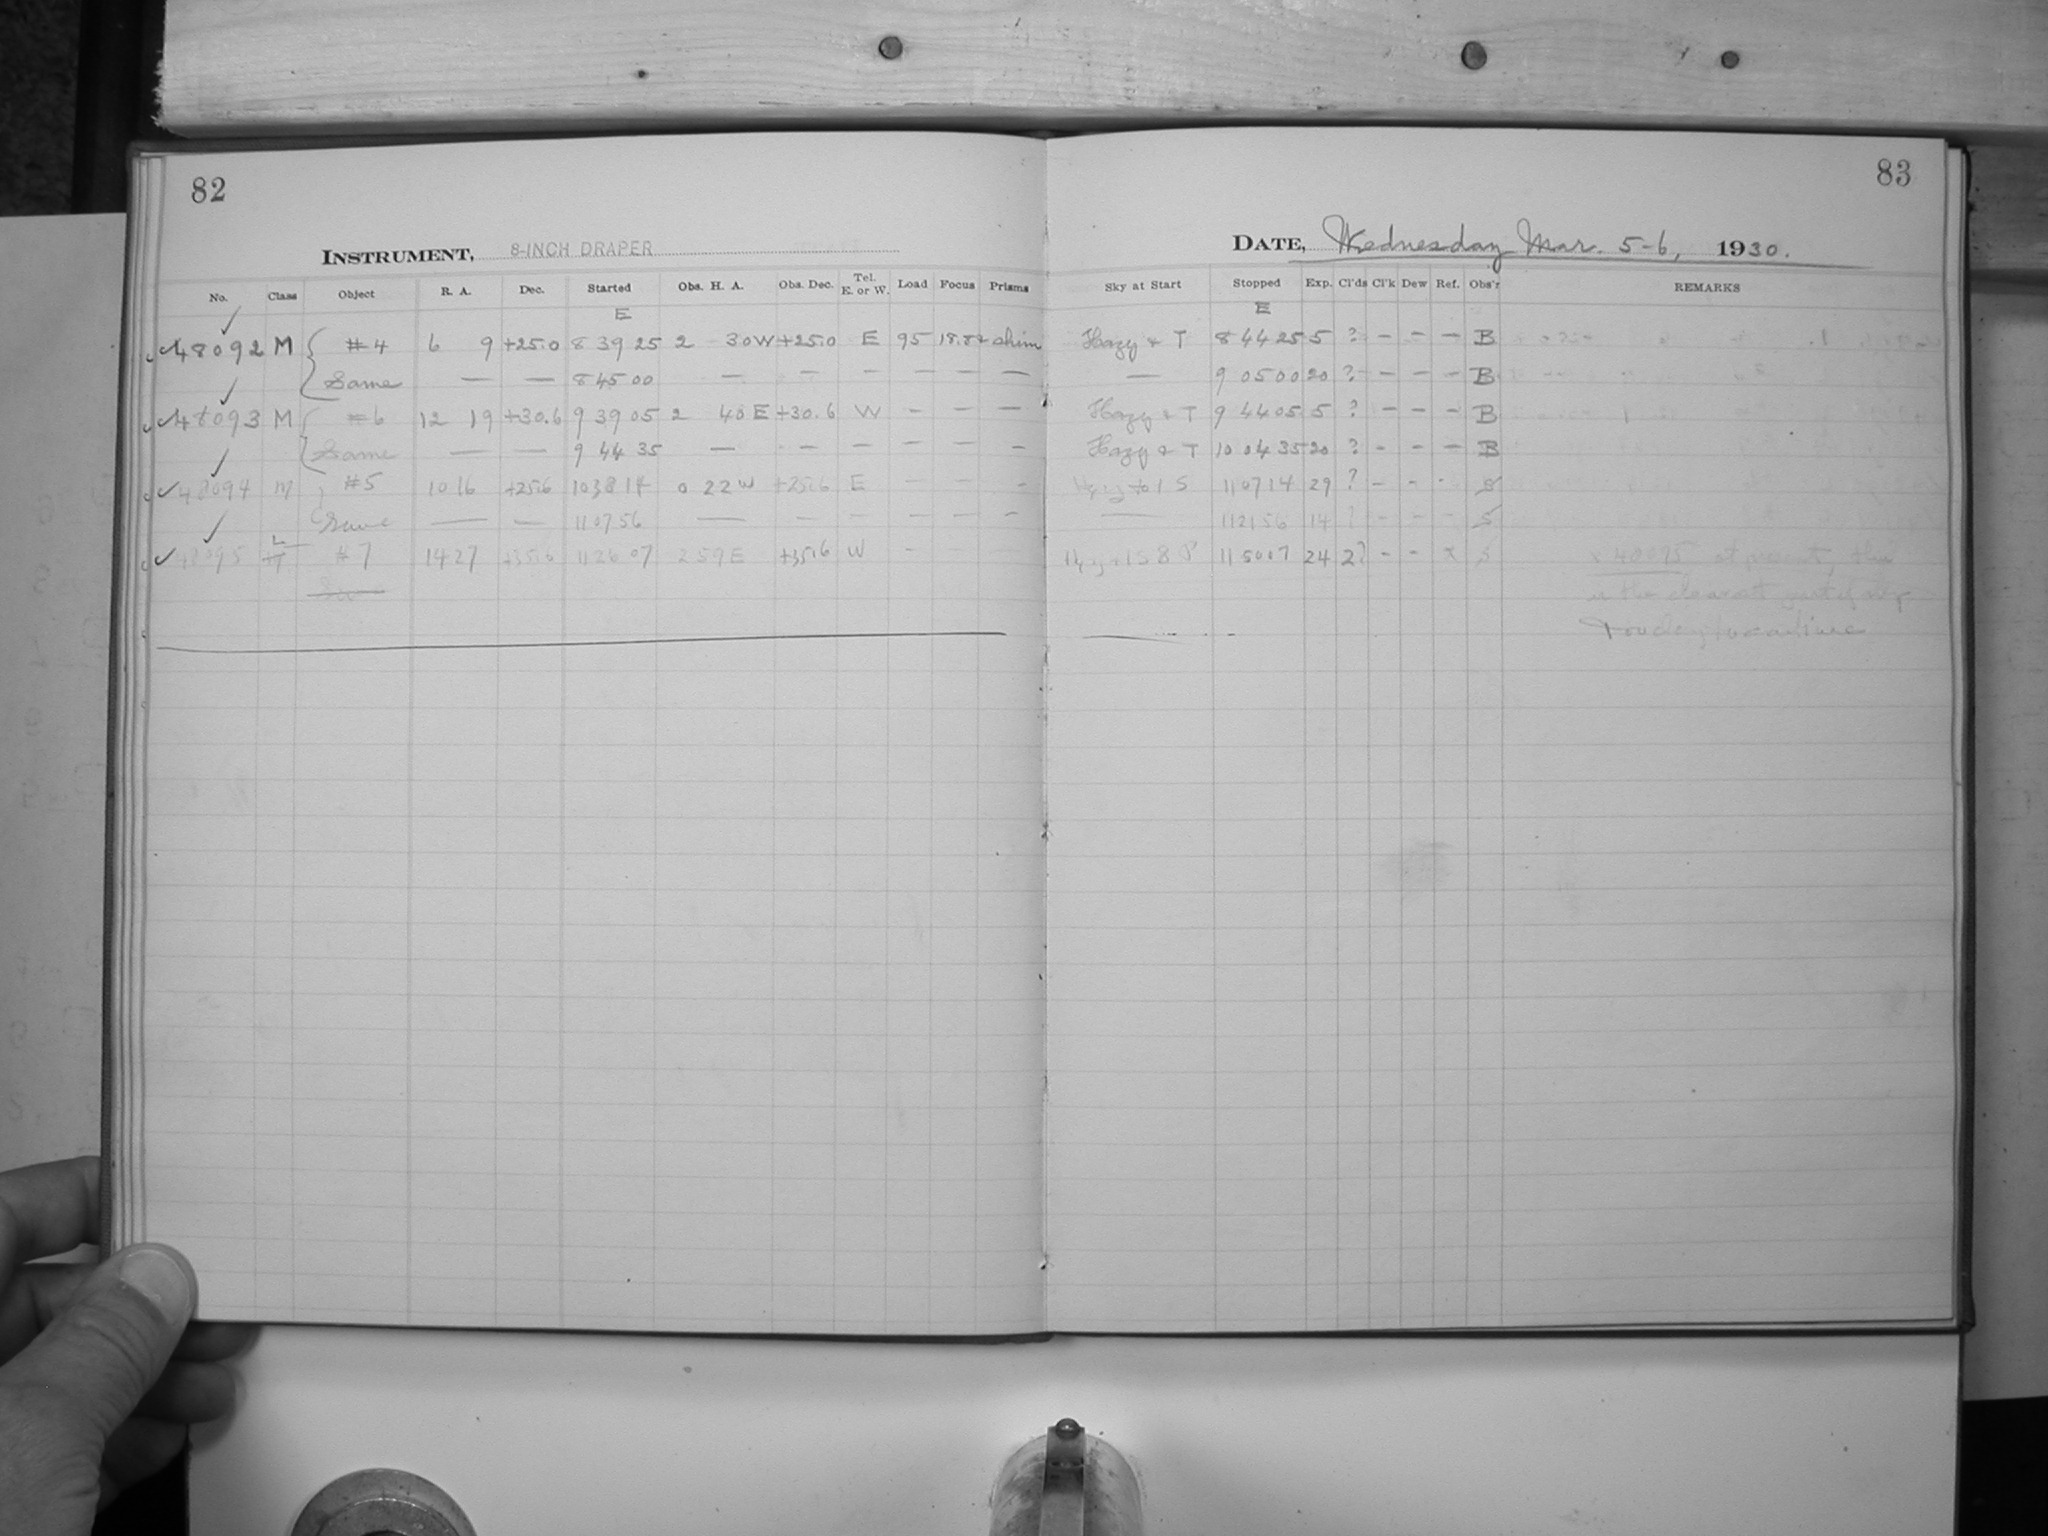 82
INSTRUMENT, 8-INCH DRAPER
No. Class Object R. A. Dec. Started Obs. H. A. Obs. Dec. Tel. E. or W. Load Focus Prisms
E
48092 M #4 6 9 +25.0 8 39 25 2 30W +25.0 E 95 18.82 shim
Same — — 8 45 00 — — — — — —
48093 M #6 12 19 +30.6 9 39 05 2 40 E +30.6 W — — —
Same — — 9 44 35 — — — — — —
48094 M #5 10 16 +25.6 10 38 14 0 22 W +25.6 E — — —
Same — — 11 07 56 — — — — — —
48095 L #7 14 27 +35.6 11 26 07 2 59 E +35.6 W — — —
83
DATE, Wednesday Mar. 5-6, 1930.
Sky at Start Stopped Exp. Cl'ds Cl'k Dew Ref. Obs'r REMARKS
E
Hazy & T 8 44 25 5 ? — — — B
— 9 05 00 20 ? — — — B
Hazy & T 9 44 05 5 ? — — — B
Hazy & T 10 04 35 20 ? — — — B
11 07 14 29 ? — — - S
— 11 21 56 14 ? - - - S
11 50 07 24 2? - - x S x 48095 at present, this
is the clearest part of sky